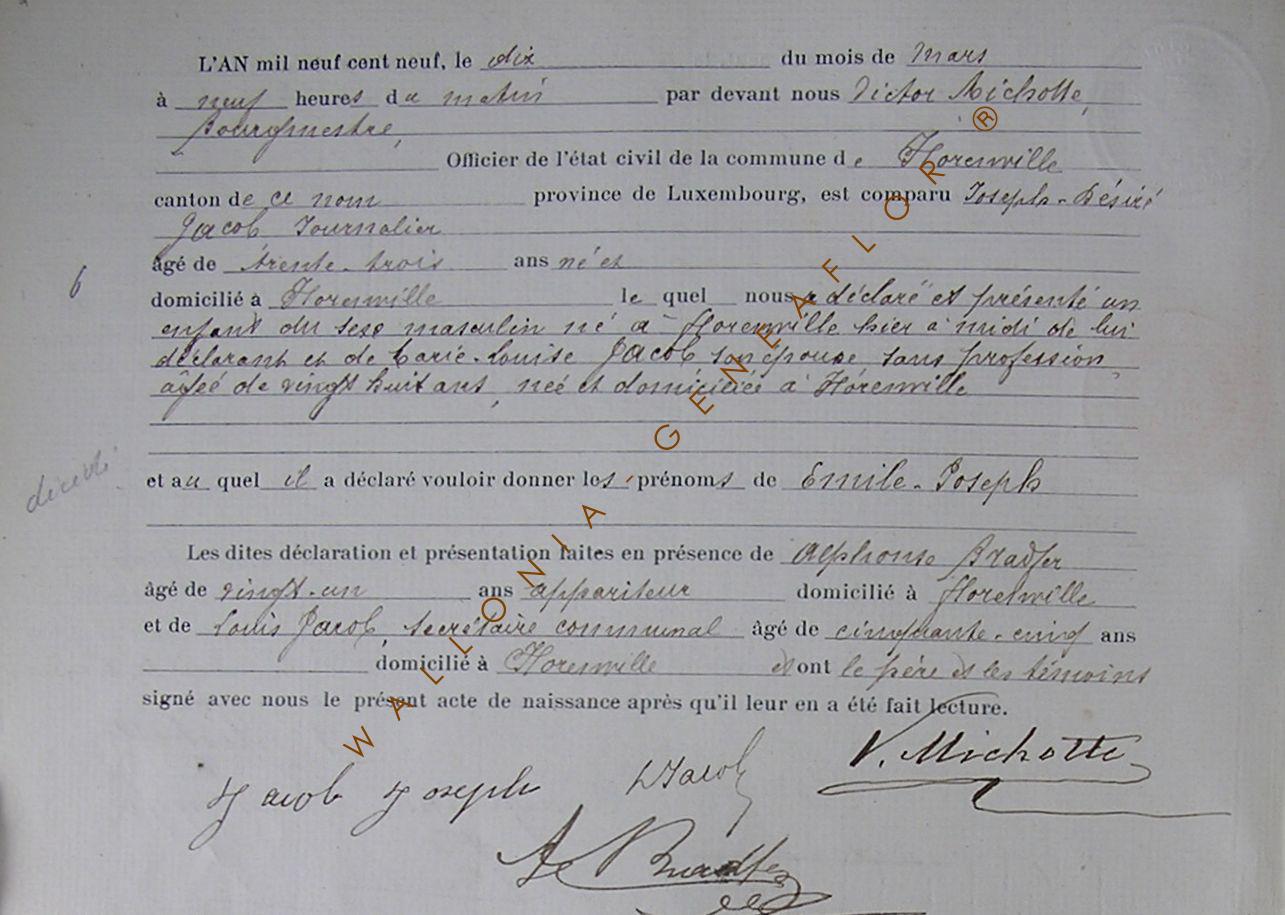 L'AN mil neuf cent neuf, le dix du mois de Mars
à neuf heures du matin par devant nous Victor Michotte,
Bourgmestre,
Officier de l'état civil de la commune de Florenville
canton de ce nom province de Luxembourg, est comparu Joseph-Désiré
Jacob Journalier
âgé de trente-trois ans né et
6
domicilié à Florenville le quel nous a déclaré et présenté un
enfant du sexe masculin né à Florenville hier à midi de lui
déclarant et de Marie-Louise Jacob son épouse sans profession,
âgée de vingt huit ans, née et domiciliée à Florenville
et au quel il a déclaré vouloir donner les prénoms de Emile-Joseph
Les dites déclaration et présentation faites en présence de Alphonse Bradfer
âgé de vingt-un ans appariteur domicilié à Florenville
et de Louis Jacob, secrétaire communal âgé de cinquante-cinq ans
domicilié à Florenville et ont le père et les témoins
signé avec nous le présent acte de naissance après qu'il leur en a été fait lecture.
V. Michotte
Jacob Joseph L Jacob
A Bradfer
WALLONIA-GENEAFLOR ®